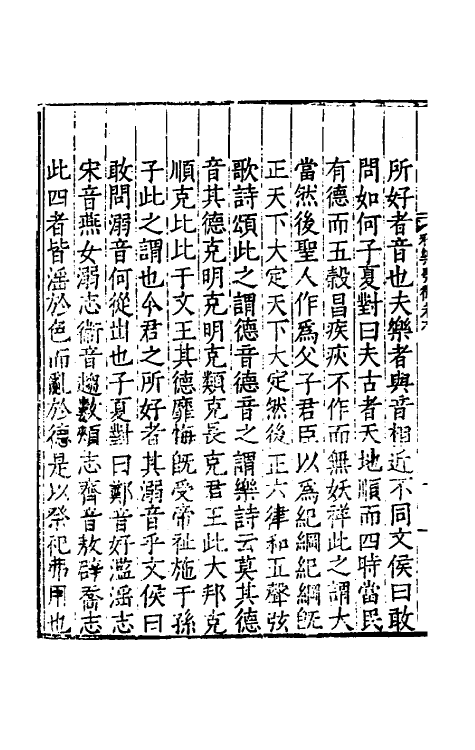 所好者音也夫樂者與音相近不同文侯曰敢
問如何子夏對曰夫古者天地順而四時當民
有德而五穀昌疾疢不作而無妖祥此之謂大
當然後聖人作爲父子君臣以爲紀綱紀綱旣
正天下大定天下大定然後正六律和五聲弦
歌詩頌此之謂德音德音之謂樂詩云莫其德
音其德克明克明克類克長克君王此大邦克
順克比比于文王其德靡悔旣受帝祉施于孫
子此之謂也今君之所好者其溺音乎文侯曰
敢問溺音何從出也子夏對曰鄭音好濫淫志
宋音燕女溺志衞音趨數煩志齊音敖辟喬志
此四者皆淫於色而亂於德是以祭祀弗用也